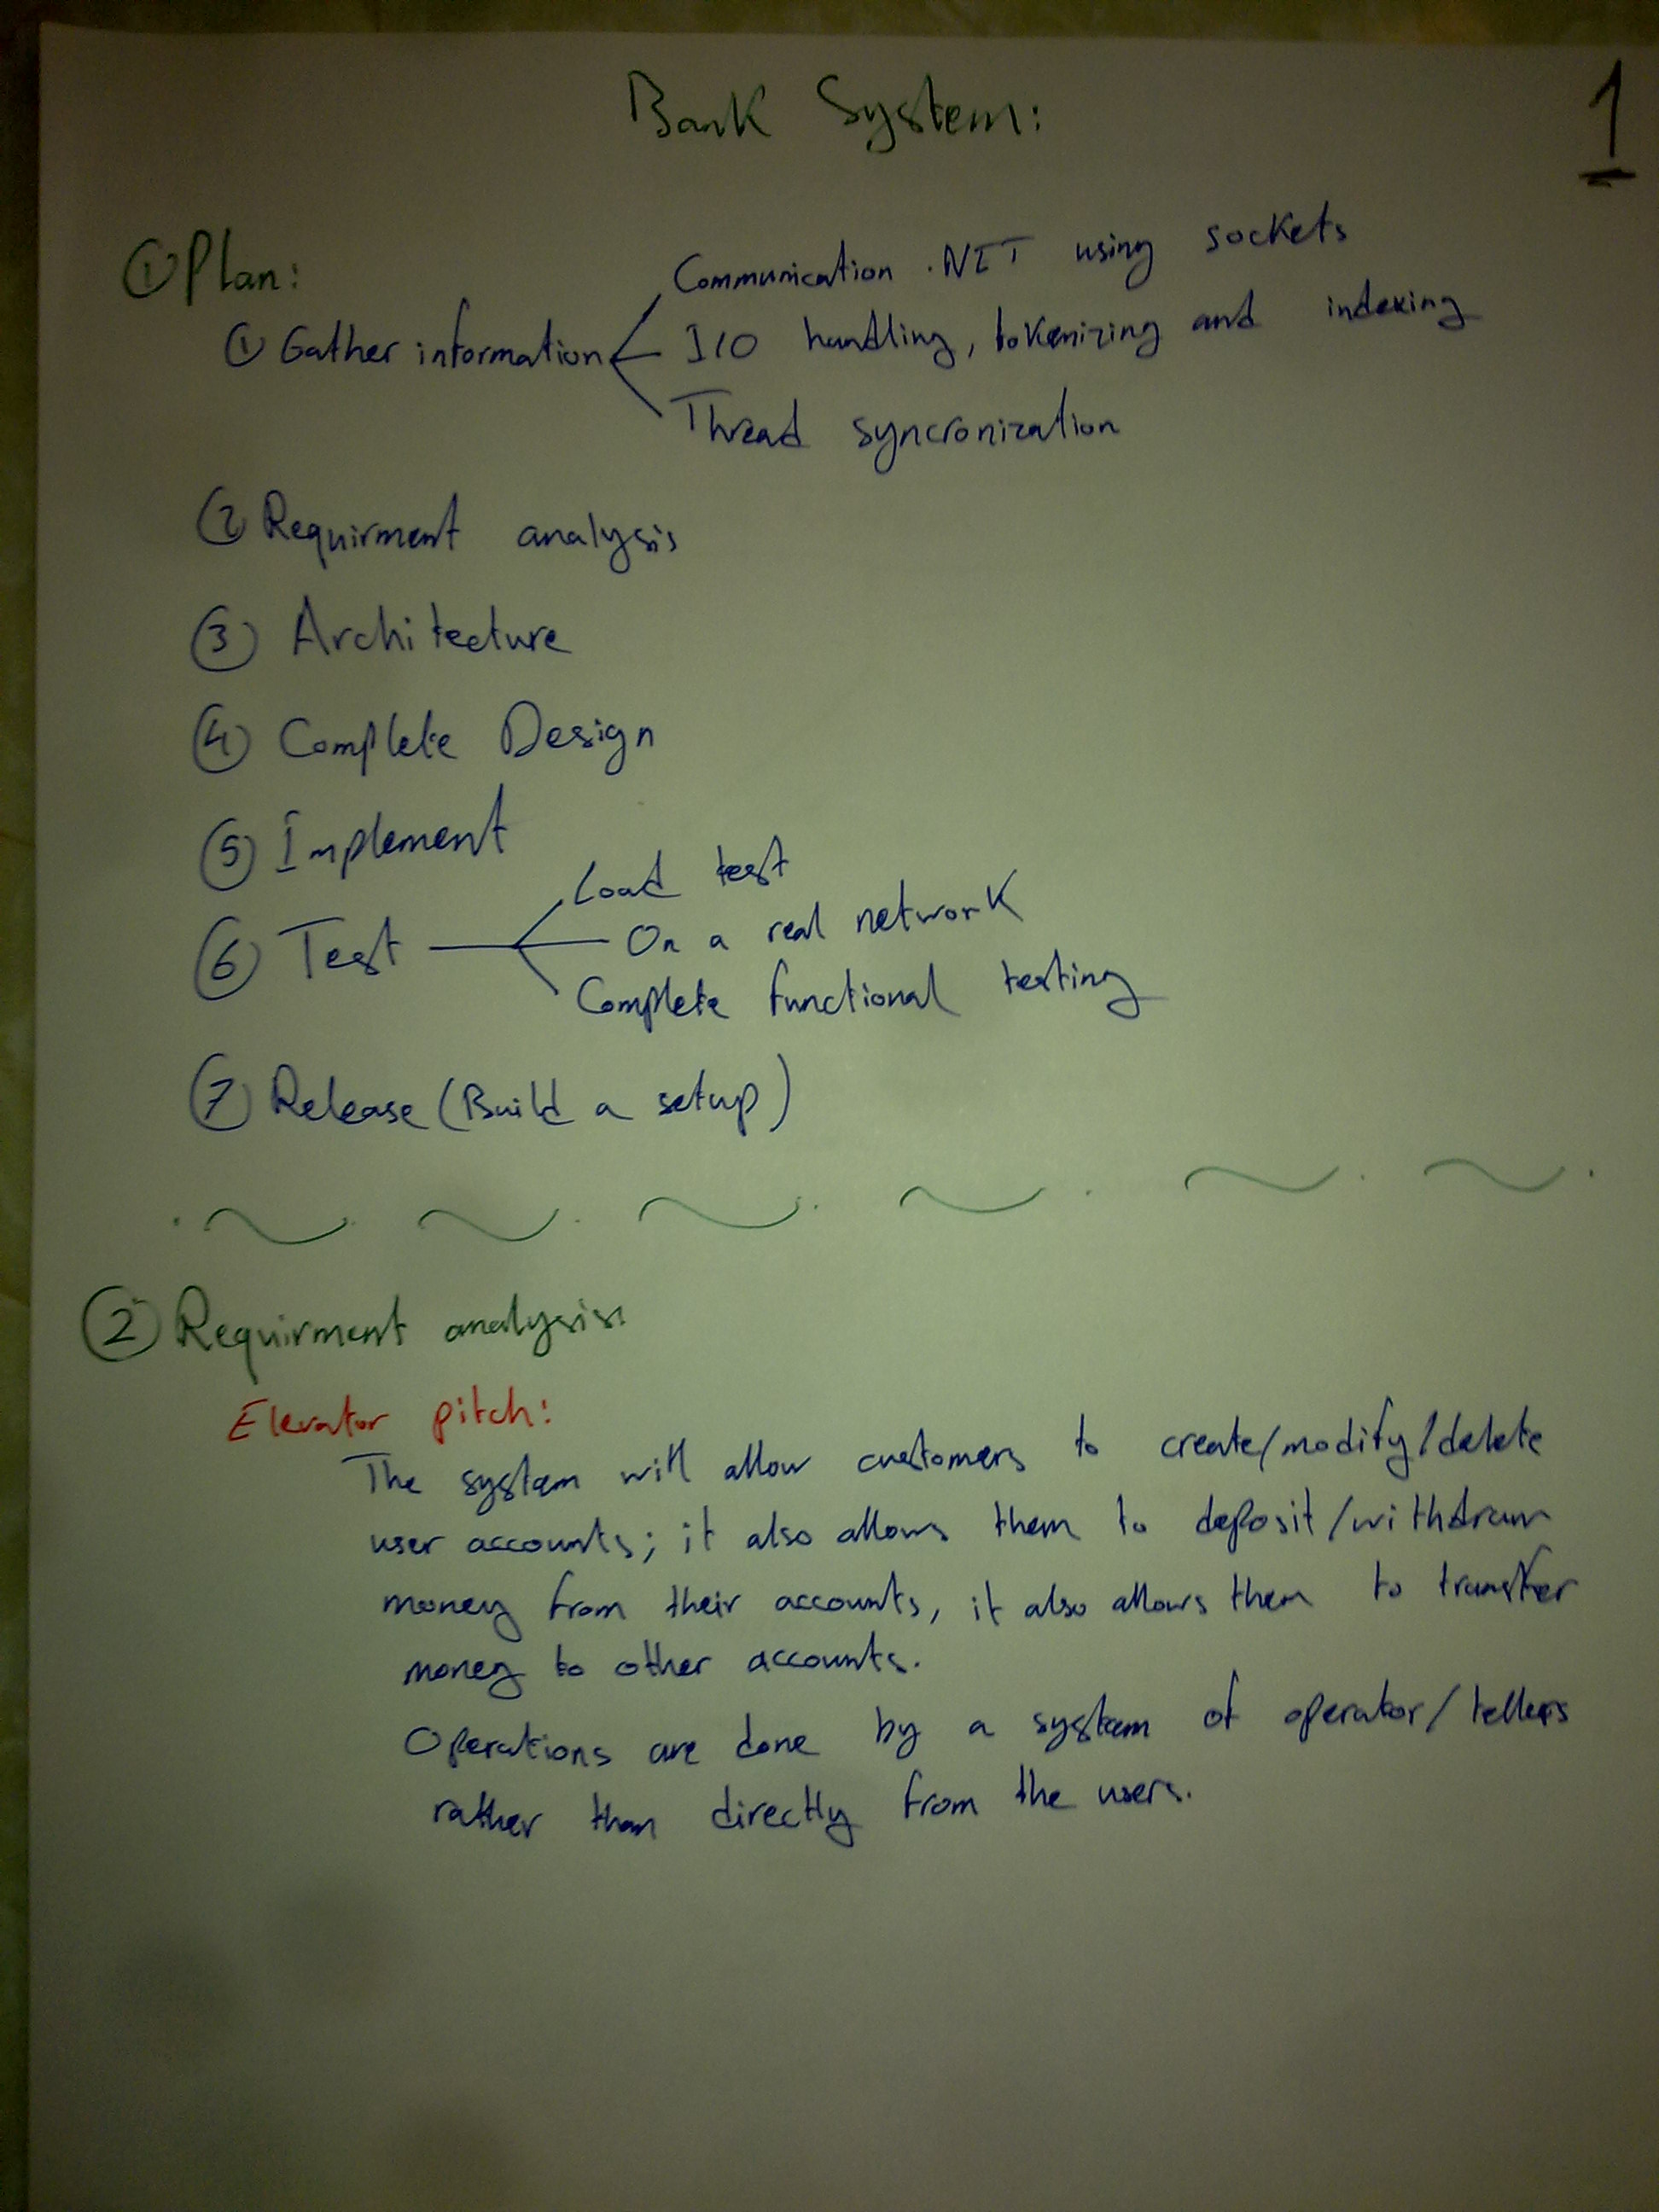 Bank System:
1
① Plan:
① Gather information
Communication .NET using sockets
I/O handling, tokenizing and indexing
Thread syncronization
② Requirment analysis
③ Architecture
④ Complete Design
⑤ Implement
⑥ Test
Load test
On a real network
Complete functional testing
⑦ Release (Build a setup)
② Requirment analysis:
Elevator pitch:
The system will allow customers to create/modify/delete
user accounts; it also allows them to deposit/withdraw
money from their accounts, it also allows them to transfer
money to other accounts.
Operations are done by a system of operator/tellers
rather than directly from the users.